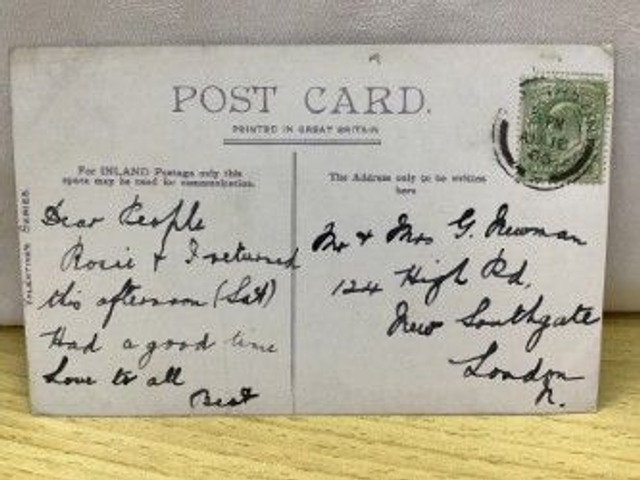 POST CARD.
PRINTED IN GREAT BRITAIN
For INLAND Postage only this
space may be used for communication.
The Address only to be written
here
VALENTINES SERIES
Dear People
Rosie & I returned
this afternoon (Sat)
Had a good time
Love to all
Bert
Mr & Mrs G. Newman
124 High Rd.
New Southgate
London
N.